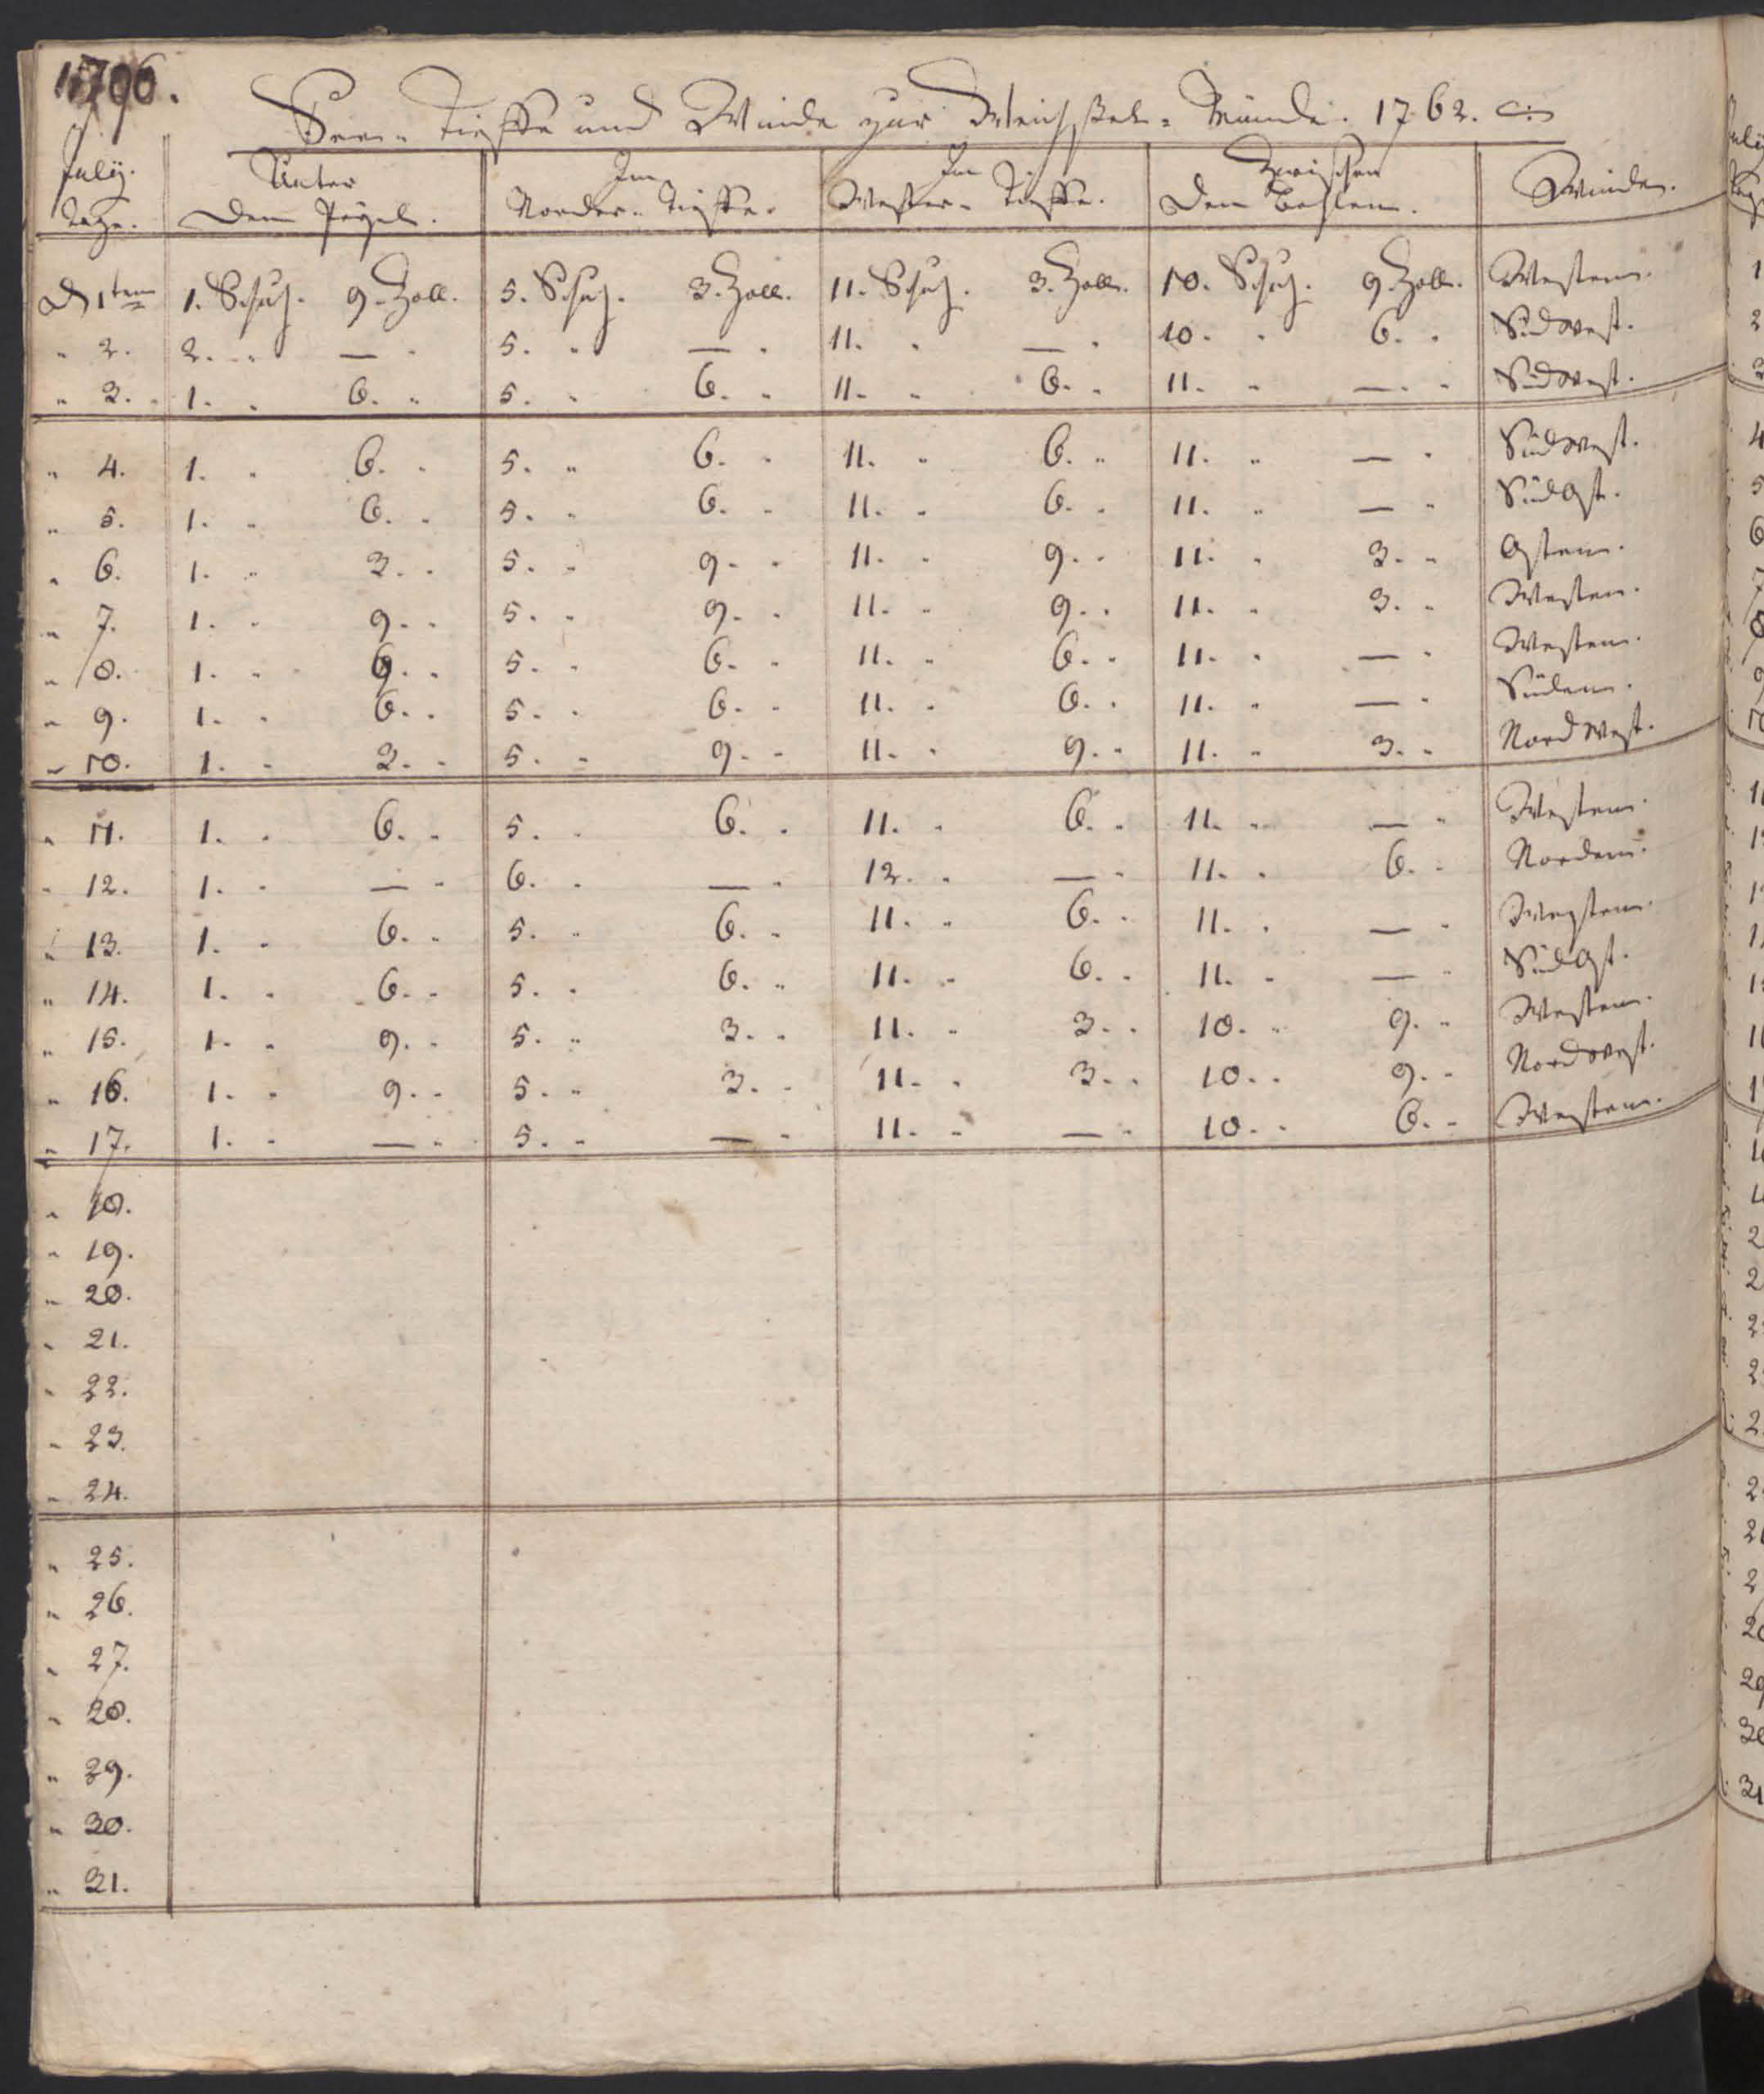 1796.
See- Tieffe und Winde zur Weichßel- Münde. 1762.
July. Tage. | Unter dem Pegel. | Im Norder- Tieffe. | Im Wester- Tieffe. | Zwischen den Bohlen. | Winden.
D 1ten 1. Schuh. 9. Zoll. 5. Schuh. 3. Zoll. 11. Schuh. 3. Zoll. 10. Schuh. 9. Zoll. Westen.
" 2. 2. " — " 5. " — " 11. " — " 10. " 6. " Südwest.
" 3. 1. " 6. " 5. " 6. " 11. " 6. " 11. " — " Südwest.
" 4. 1. " 6. " 5. " 6. " 11. " 6. " 11. " — " Südwest.
" 5. 1. " 6. " 5. " 6. " 11. " 6. " 11. " — " SüdOst.
" 6. 1. " 3. " 5. " 9. " 11. " 9. " 11. " 3. " Osten.
" 7. 1. " 9. " 5. " 9. " 11. " 9. " 11. " 3. " Westen.
" 8. 1. " 5. " 6. " 11. " 6. " 11. " — " Westen.
" 9. 1. " 6. " 5. " 6. " 11. " 6. " 11. " — " Süden.
" 10. 1. " 3. " 5. " 9. " 11. " 9. " 11. " 3. " Nordwest.
" 11. 1. " 6. " 5. " 6. " 11. " 6. " 11. " — " Westen.
" 12. 1. " — " 6. " — " 12. " — " 11. " 6. " Norden.
" 13. 1. " 6. " 5. " 6. " 11. " 6. " 11. " — " Westen.
" 14. 1. " 6. " 5. " 6. " 11. " 6. " 11. " — " SüdOst.
" 15. 1. " 9. " 5. " 3. " 11. " 3. " 10. " 9. " Westen.
" 16. 1. " 9. " 5. " 3. " 11. " 3. " 10. " 9. " Nordwest.
" 17. 1. " — " 5. " — " 11. " — " 10. " 6. " Westen.
" 18.
" 19.
" 20.
" 21.
" 22.
" 23.
" 24.
" 25.
" 26.
" 27.
" 28.
" 29.
" 30.
" 31.